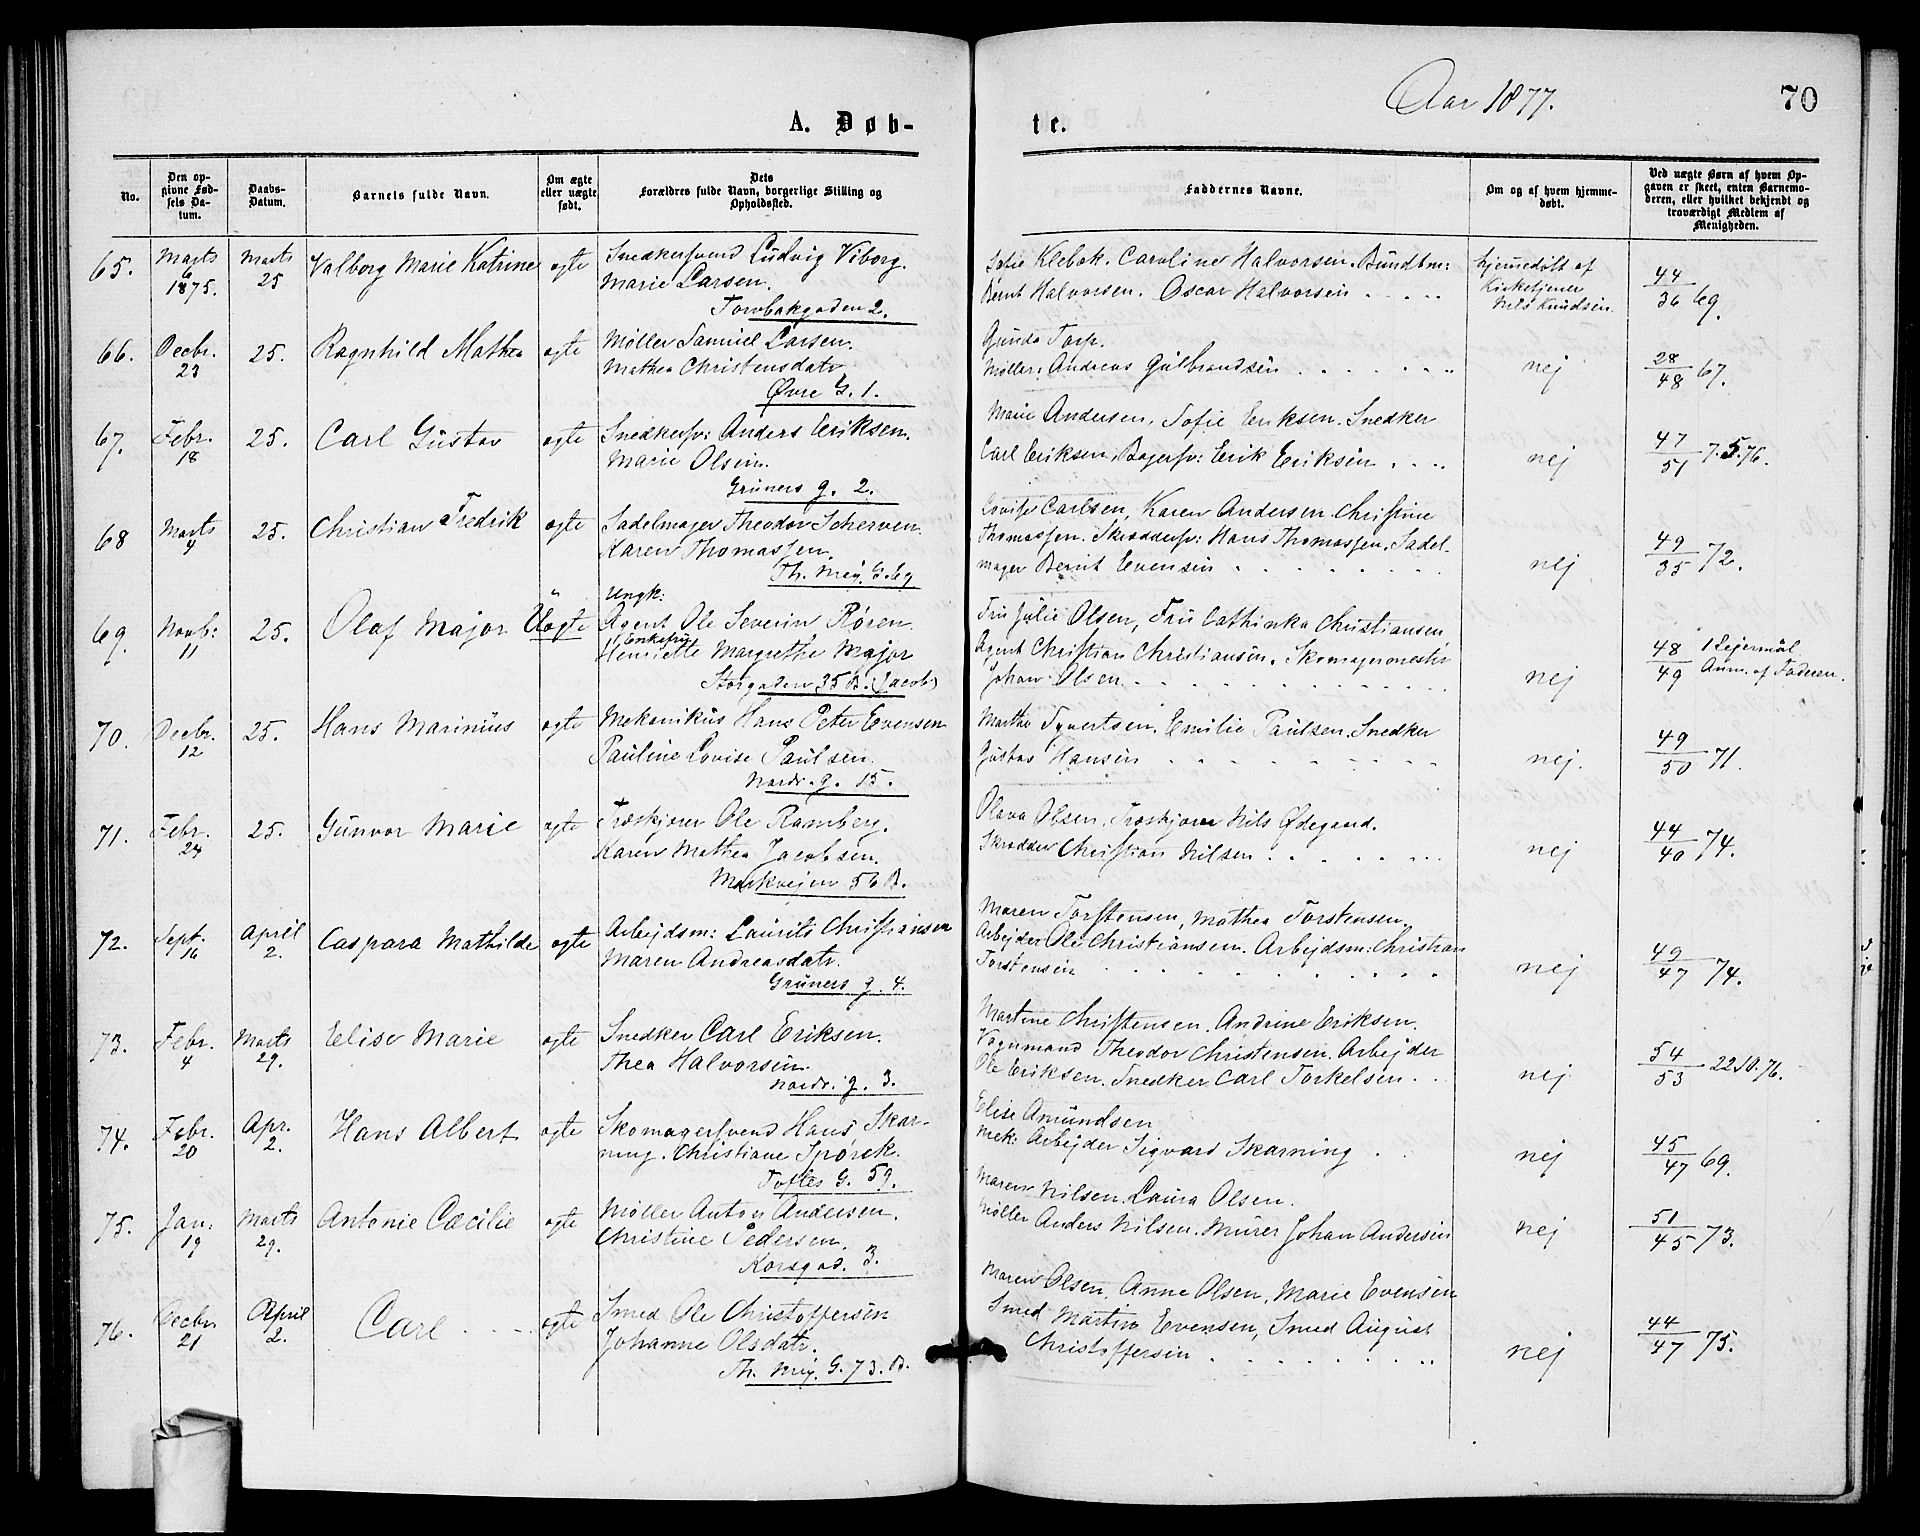 Aar 1877.
70
A. Døb-
te.
No.
Den op-
givne Fød-
sels Da-
tum.
Daabs-
Datum.
Barnets fulde Navn.
Om ægte
eller uægte
født.
Dets
Forældres fulde Navn, borgerlige Stilling og
Opholdssted.
Faddernes Navne.
Om og af hvem hjemme-
døbt.
Ved uægte Børn af hvem Op-
gaven er skeet, enten Barnemo-
deren, eller hvilket bekjendt og
troværdigt Medlem af
Menigheden.
65.
Marts
6
1875.
Marts
25
Valborg Marie Katrine
ægte
Snedkersvend Ludvig Viborg.
Marie Larsen.
Torvbakgaden 2.
Sofie Klebak. Caroline Halvorsen. Bundtm:
Bernt Halvorsen. Oscar Halvorsen
hjemedøbt af
Kirketjener
Nils Knudsen.
44/36 69.
66.
Decbr.
23
25.
Ragnhild Mathea
ægte
Møller Samuel Larsen.
Mathea Christensdatr.
Øvre G. 1.
Gunda Torp.
Møller Andreas Gulbrandsen
nej
28/48 67.
67.
Febr.
18
25.
Carl Gustav
ægte
Snedkersv: Anders Eriksen.
Marie Olsen.
Grüners g. 2.
Marie Andersen. Sofie Eriksen. Snedker
Carl Eriksen. Bagersv: Erik Eriksen
nej
47/51 7.5.76.
68
Marts
4
25.
Christian Fredrik
ægte
Sadelmager Theodor Scherven
Karen Thomassen.
Th. Mey. G. 69
Lovise Carlsen, Karen Andersen. Christine
Thomassen. Skræddersv: Hans Thomassen. Sadel-
mager Bernt Evensen
nej
49/35 72.
69.
Novb:
11
25.
Olaf Major
Uægte
Ungk:
Agent Ole Severin Røren.
Enkefru
Henriette Margrethe Major
Storgaden 35 B. (Jacob)
Fru Julie Olsen, Fru Cathinka Christiansen
Agent Christian Christiansen. Skomagermester
Johan Olsen
nej
48/49 1 Lejermål
Anm. af Faderen.
70.
Decbr.
12
25.
Hans Marinius
ægte
Mekanikus Hans Peter Evensen
Pauline Lovise Paulsen.
Nordr. g. 15.
Marthe Syvertsen. Emilie Paulsen. Snedker
Gustav Hansen
nej.
49/50 71.
71.
Febr.
24
25.
Gunvor Marie
ægte
Træskjærer Ole Ramberg.
Karen Mathea Jacobsen.
Markveien 56 B.
Olava Olsen. Træskjærer Nils Ødegaard.
Skrædder Christian Nilsen
nej
44/40 74.
72.
Sept.
16
April
2.
Caspara Mathilde
ægte
Arbejdsm: Laurits Christiansen
Maren Andreasdatr.
Grüners g. 4.
Maren Torstensen, Mathea Torstensen,
Arbejder Ole Christiansen. Arbejdsm: Christian
Torstensen
nej
49/47 74.
73.
Febr.
4
Marts
29.
Elise Marie
ægte
Snedker Carl Eriksen.
Thea Halvorsen.
Nordr. g. 3.
Martine Christensen. Andrine Eriksen.
Vognmand Theodor Christensen. Arbejder
Ole Eriksen. Snedker Carl Torkelsen
nej
54/53 22.10.76.
74.
Febr.
20
Apr.
2.
Hans Albert
ægte
Skomagersvend Hans Skar-
ning. Christiane Spørck.
Toftes G. 59.
Elise Amundsen
Mek: Arbejder Sigvard Skarning
nej
45/47 69.
75.
Jan:
19
Marts
29.
Antonie Cæcilie
ægte
Møller Anton Andersen.
Christine Pedersen.
Korsgad. 3.
Maren Nilsen. Laura Olsen.
Møller Anders Nilsen. Murer Johan Andersen
nej
51/45 73.
76.
Decbr.
21
April
2.
Carl
ægte
Smed Ole Christoffersen
Johanne Olsdatr.
Th. Mey. G. 73. B.
Maren Olsen. Anne Olsen, Marie Evensen
Smed Martin Evensen, Smed August
Christoffersen
nej
44/47 75.